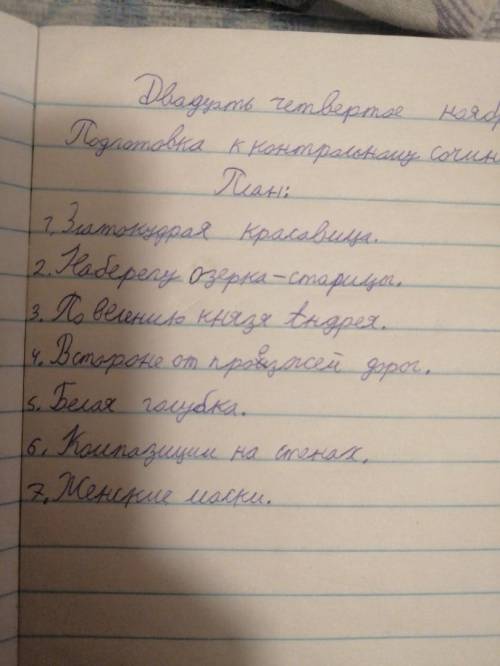 Двадцать четвертое нояб
Подготовка к контрольному сочин
План:
1. Златокудрая красавица.
2. На берегу озерка-старицы.
3. По велению князя Андрея.
4. В стороне от проезжей дорог.
5. Белая голубка.
6. Компазиции на стенах.
7. Женские маски.